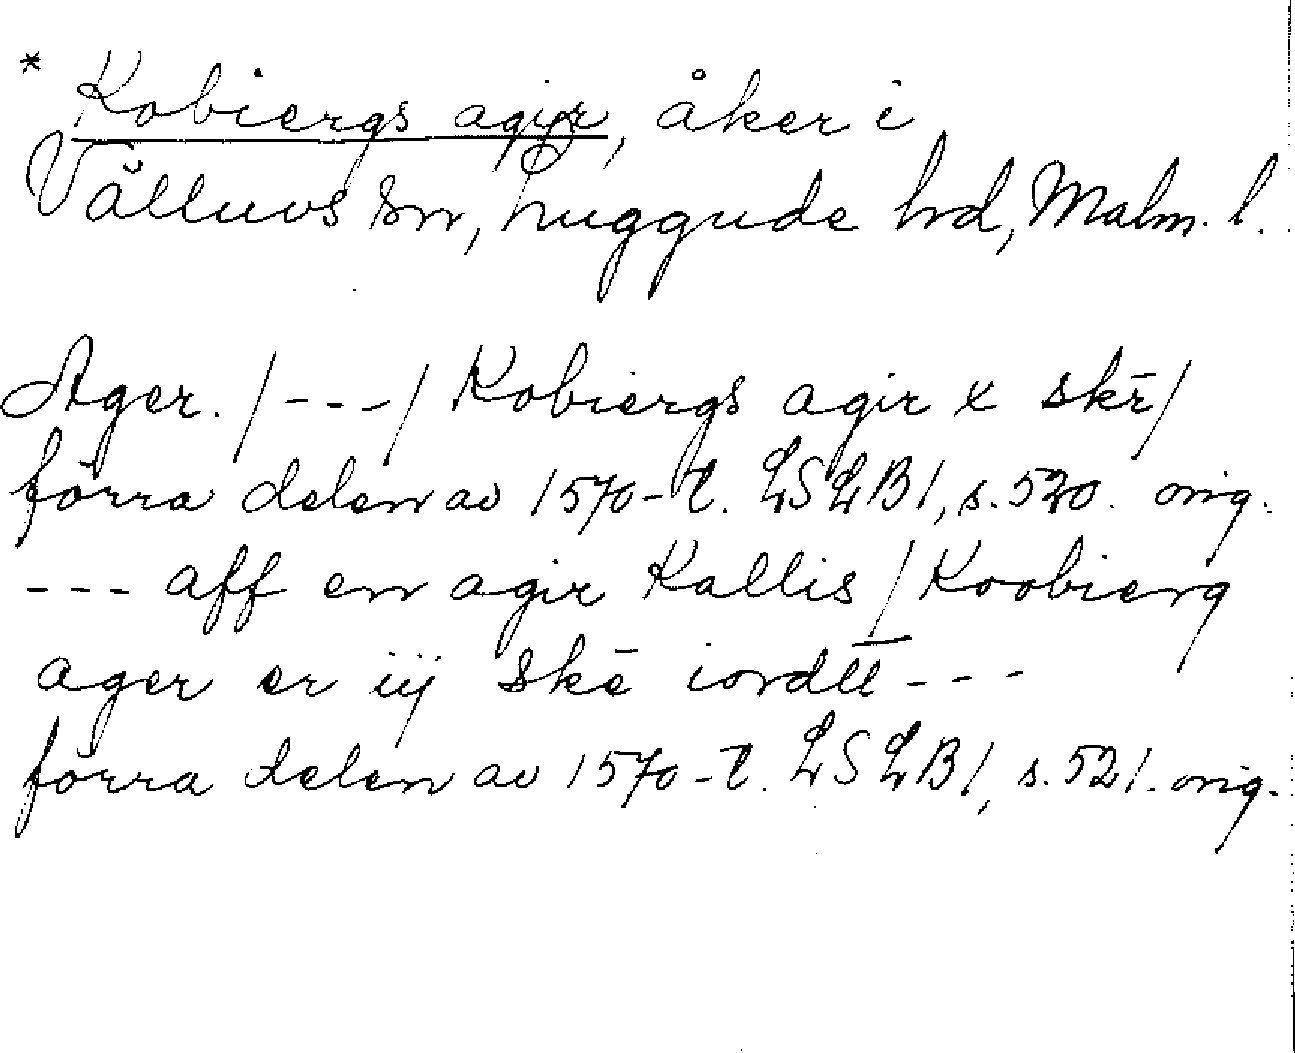 * Kobiergs agir, åker i
Välluvs sn, Luggude hd, Malm. l.
Ager. /---/ Kobiergs agir x skr̄/
förra delen av 1570-t. LSLB1, s. 520. orig.
--- aff en agir Kallis / Koobierg
ager er iij skē iordtt ---
förra delen av 1570-t. LSLB1, s. 521. orig.